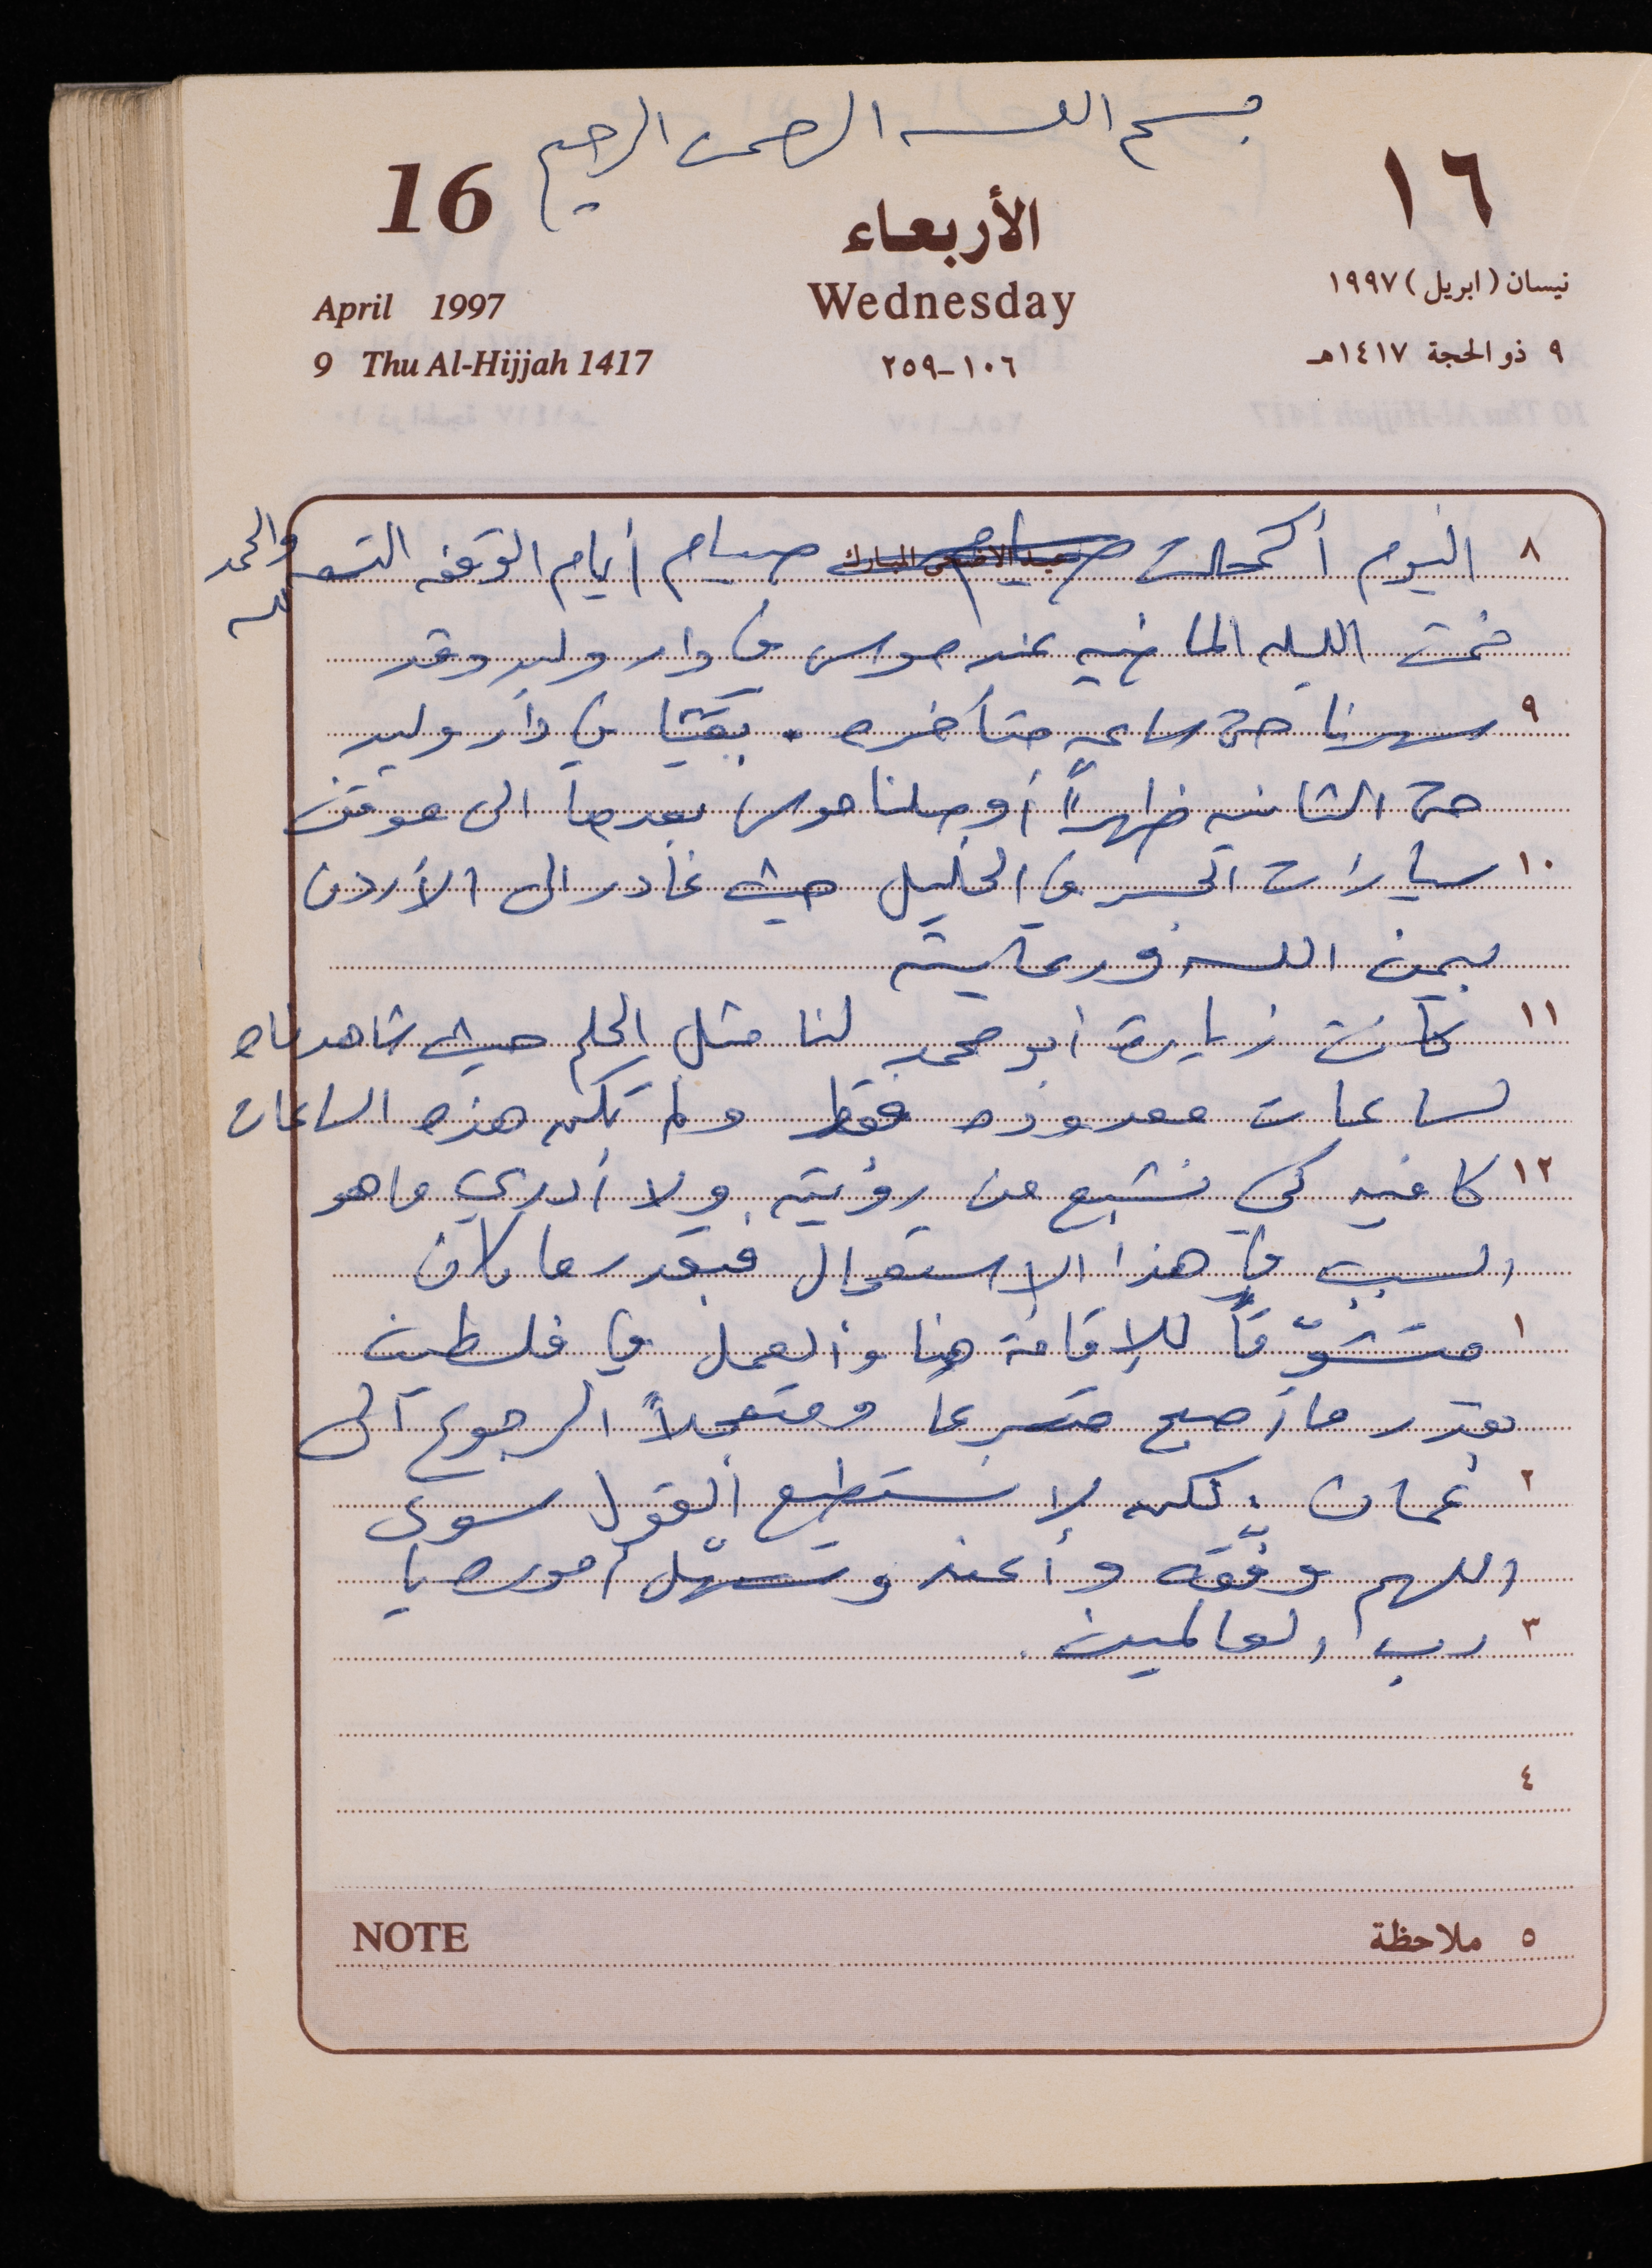 بسم الله الرحمن الرحيم
16
١٦
الأربعاء
Wednesday
١٠٦-٢٥٩
April 1997
9 Thu Al-Hijjah 1417
نيسان (ابريل) ١٩٩٧
٩ ذو الحجة ١٤١٧هـ
٨ اليوم أكملت صيام عيد الاضحى المبارك صيام أيام الوقفه التسعه والحمد لله
نمت الليله الماضيه عند في دار وليد وقد
٩ سهرنا حتى ساعه متأخره . بقينا في دار وليد
حتى الثانيه ظهراً أوصلنا بعدها الى موقف
١٠ سيارات الجسر في الخليل حيث غادر الى الأردن
بيمن الله ورعايته
١١ كانت زيارة أبو محمد لنا مثل الحلم حيث شاهدناه
لساعات معدوده فقط ولم تكن هذه الساعات
١٢ كافيه كي نشبع من رؤيته ولا أدري ما هو
السبب في هذا الاستعجال فبقدر ما كان
١ متشوّقاً للإقامة هنا والعمل في فلسطين
بقدر ما أصبح متسرعاً ومتعجلاً الرجوع الى
٢ عمان . لكن لا نستطيع القول سوى
اللهم وفّقه وأعنه وسهّل أموره يا
٣ رب العالمين .
٤
NOTE
٥ ملاحظة